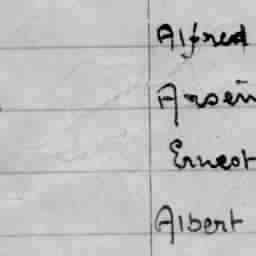 Alfred
Arsèn
Ernest
Albert